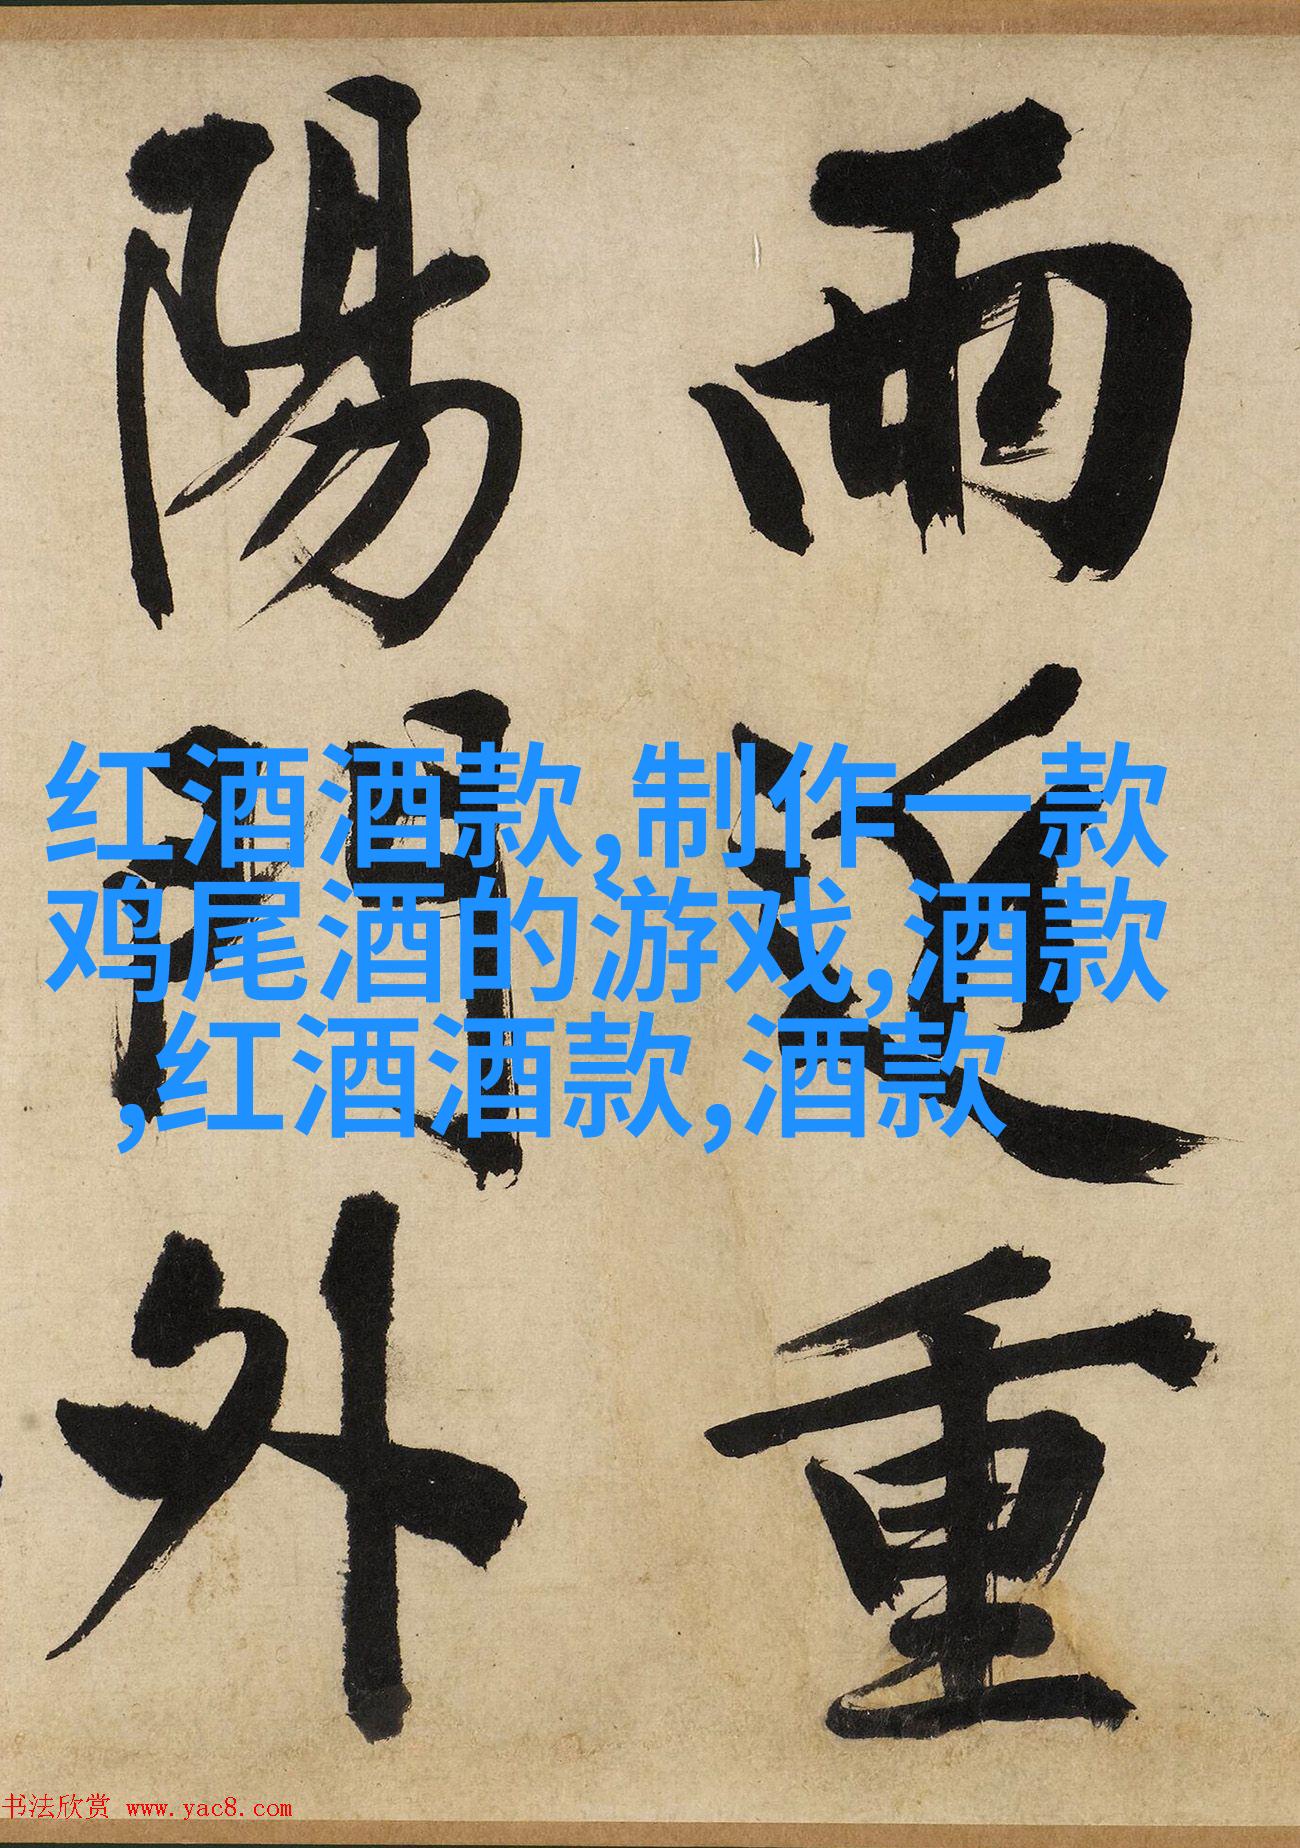 雨近重
陽門外
红酒酒款,制作一款
鸡尾酒的游戏,酒款
,红酒酒款,酒款
书法欣赏 www.yac8.com